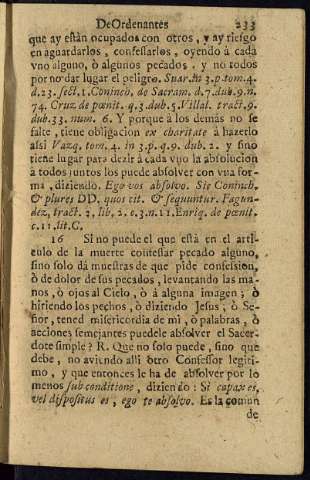 DeOrdenantes 233
que ay están ocupados con otros, y ay riesgo
en aguardarlos, confessarlos, oyendo à cada
vno alguno, ò algunos pecados, y no todos
por no dar lugar el peligro. Suar. in 3. p. tom. 4.
d. 23. sect. 1. Coninch. de Sacram. d. 7. dub. 9. n.
74. Cruz de pœnit. q. 3. dub. 5. Villal. tract. 9.
dub. 33. num. 6. Y porque à los demás no se
falte, tiene obligacion ex charitate à hazerlo
assi Vazq. tom. 4. in 3. p. q. 9. dub. 2. y sino
tiene lugar para dezir à cada vno la absolucion
à todos juntos los puede absolver con vna for-
ma, diziendo. Ego vos absolvo. Sic Coninch.
& plures DD. quos cit. & sequuntur. Fagun-
dez, tract. 2, lib, 2. c. 3. n. 11. Enriq. de pœnit.
c. 11. lit. C.
16 Si no puede el que está en el arti-
culo de la muerte confessar pecado alguno,
sino solo dá muestras de que pide confession,
ò de dolor de sus pecados, levantando las ma-
nos, ò ojos al Cielo, ò à alguna imagen; ò
hiriendo los pechos, ò diziendo Jesus; ò Se-
ñor, tened misericordia de mi, ò palabras, ò
acciones semejantes puedele absolver el Sacer-
dote simple? R. Que no solo puede, sino que
debe, no aviendo alli otro Confessor legiti-
mo, y que entonces le ha de absolver por lo
menos sub conditione, diziendo: Si capax es,
vel dispositus es, ego te absolvo. Es la comun
de